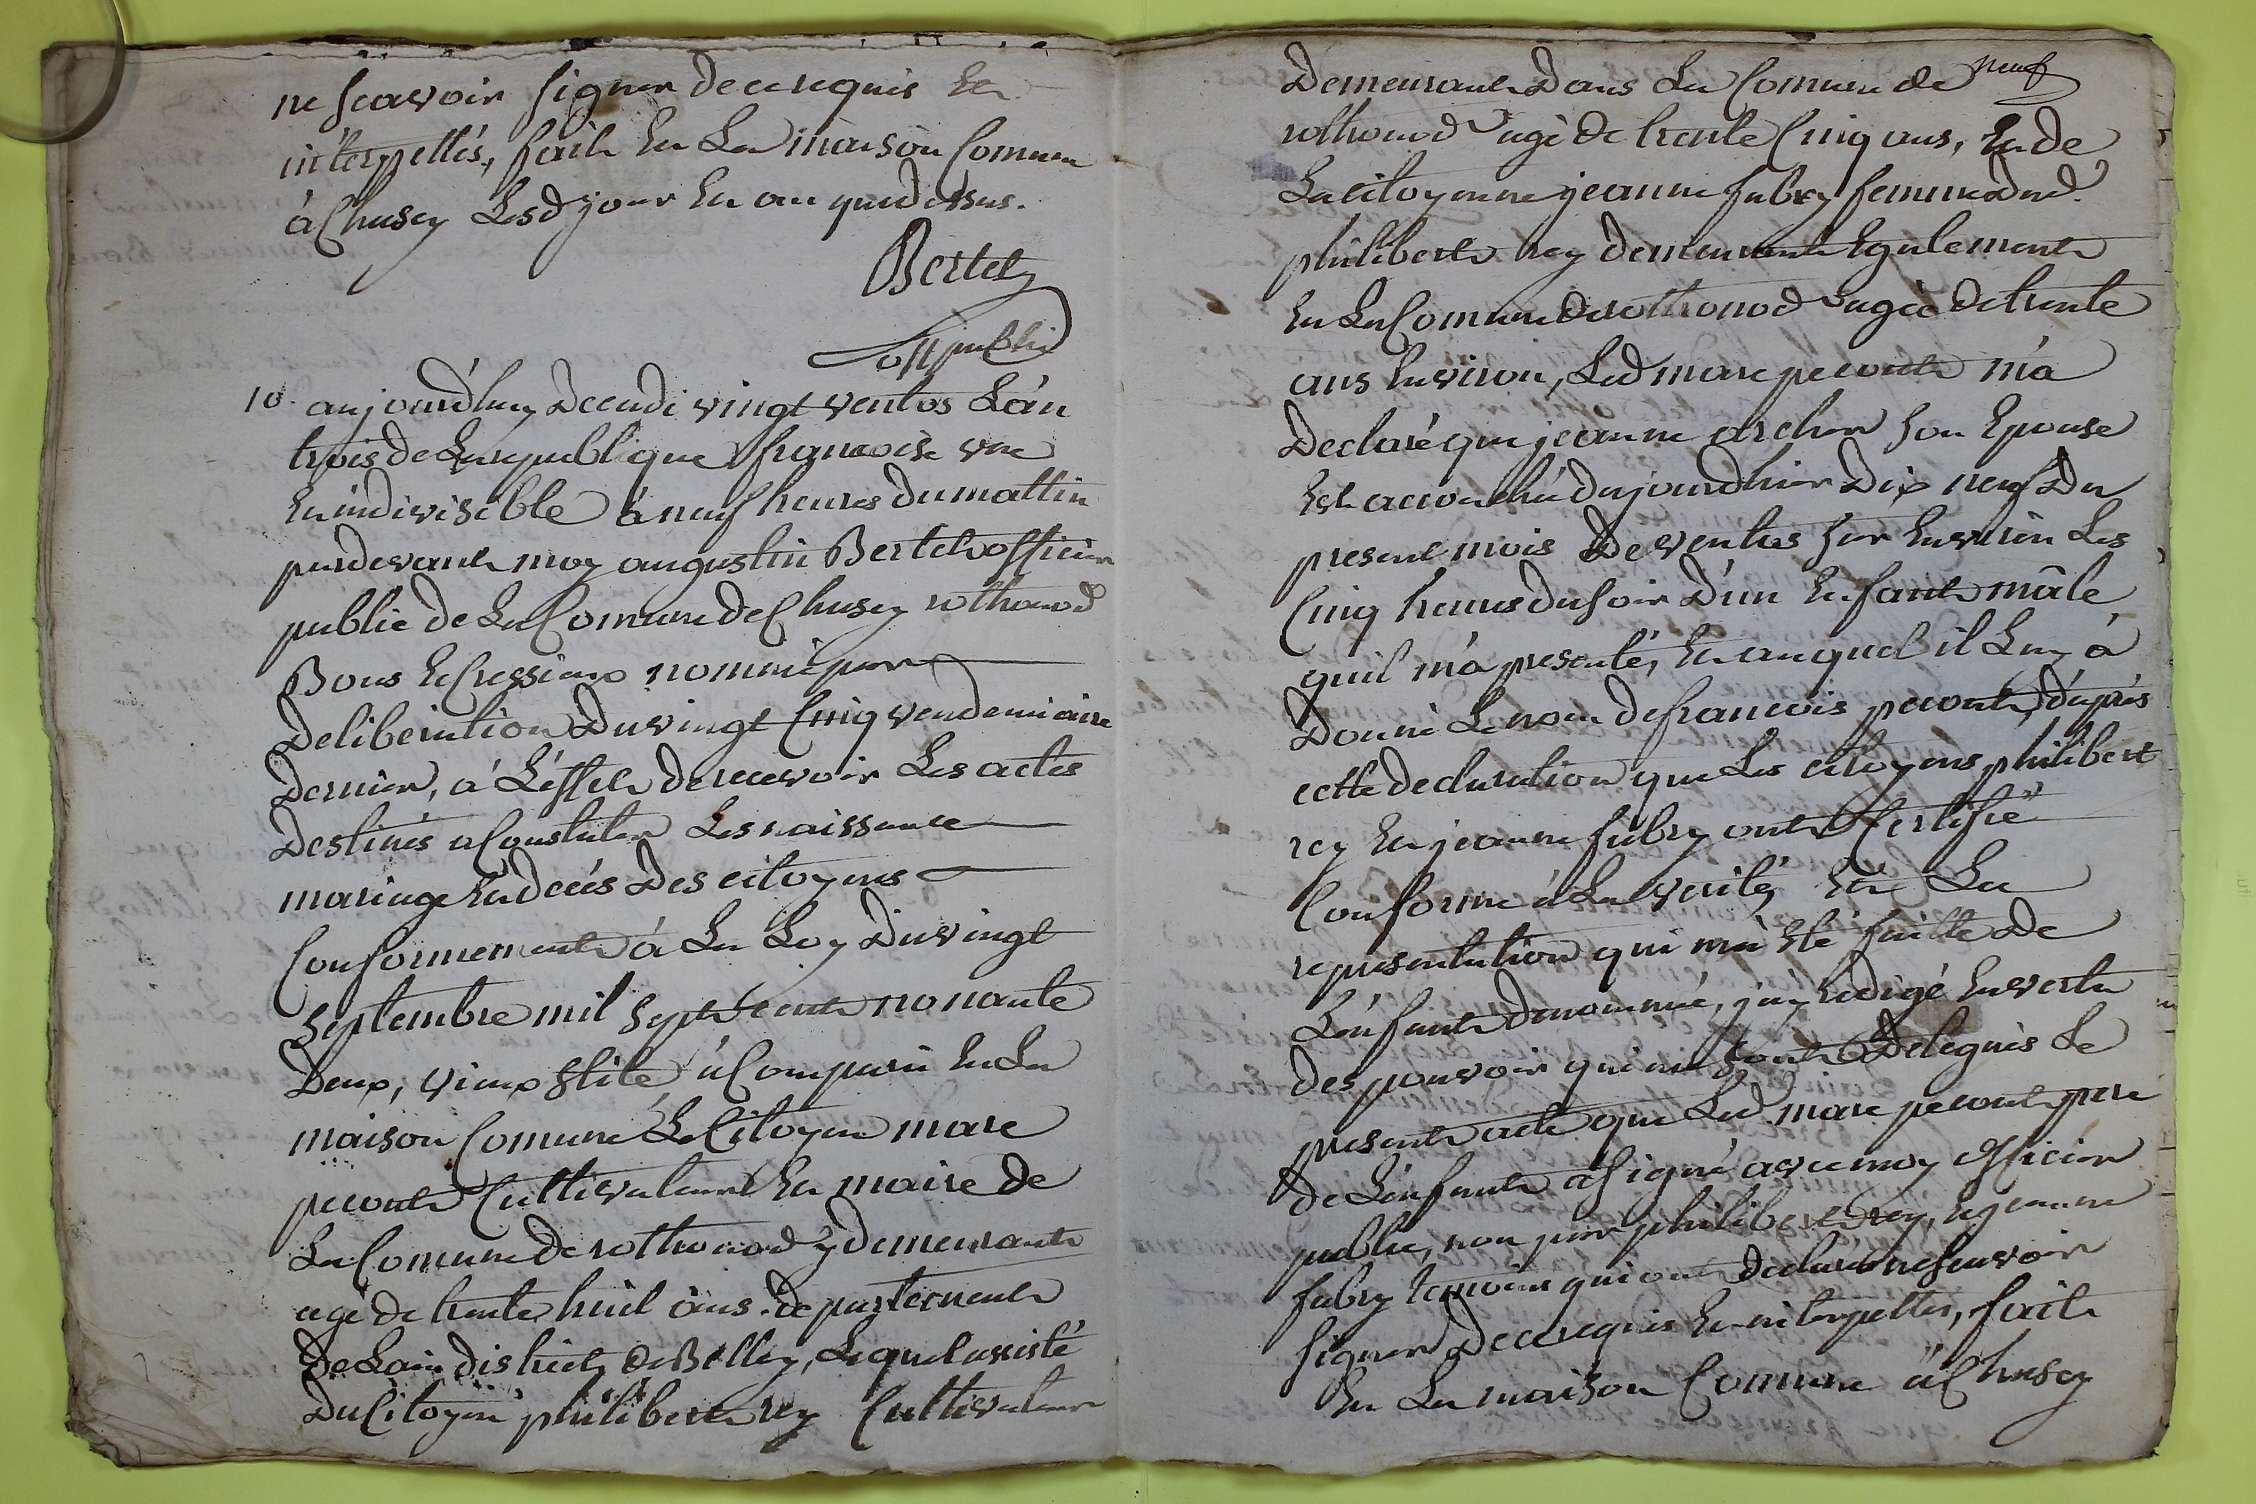 ne scavoir signer de ce requis Et
interpellés, fait En La maison Comune
à Chusey Lesd jour En an que dessus.
Bertet
off public
10. aujourd'huy Decadi vingt ventos L'an
trois de La republique francoise une
En indivisible à neuf heures du mattin
par devant moy augustin Bertet officier
public de La Comune de Chusey rothonod
Bons Et Cressieux nommé par
Deliberation Du vingt Cinq vendemiaire
Dernier, à L'effet de recevoir Les actes
Destinés a Constater Les naissance
mariage En décés Des citoyens
Conformement à La Loy Du vingt
Septembre mil Sept cent nonante
Deux, vieux stile à Comparu En La
maison Comune Le Citoyen marc
pecout Cultivateur En maire de
La Comune de rothonod y demeurant
agé de trente huit ans. departement
De Lain district de Belley, Lequel assisté
Du Citoyen philibert rey Cultivateur
Demeurant Dans La Comune de
rothonod agé de trente Cinq ans, En de
La citoyenne jeanne fabry femme dud
philibert rey demeurant Egalement
En La Comune de rothonod agée de trente
ans Environ, Led marc pecout m'a
Declaré que jeanne archer son Epouse
Est accouchée dujourdhier Dix neuf Du
present mois De ventos sur Environ Les
Cinq heures du soir D'un Enfant mâle
quil m'a presenté, En auquel il Luy à
Donné Le nom de francois pecout, d'aprés
cette declaration que Les citoyens philibert
rey En jeanne fabry ont Certifié
Conforme à La verité, Et La
representation qui m'a Eté faitte De
L'enfant denommé, j'ay redigé En vertu
des pouvoir qui me sont Delegués Le
present acte que Led marc pecout pere
de L'enfant a signé avec moy officier
public, non par philibert rey, Et jeanne
fabry temoins qui ont declarés ne scavoir
signer De ce requis En interpellés, fait
En La maison Comune à Chusey
neuf